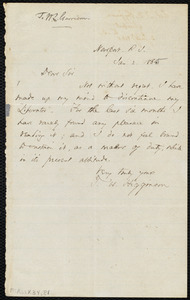 T. W. Higginson
Newport R. I.
Jan. 1. 1865
Dear Sir
Not without regret I have
made up my mind to discontinue my
Liberator. For the last six months I
have rarely found any pleasure in
reading it; and I do not feel bound
to continue it, as a matter of duty, while
in its present attitude.
Very truly yours
T. W. Higginson